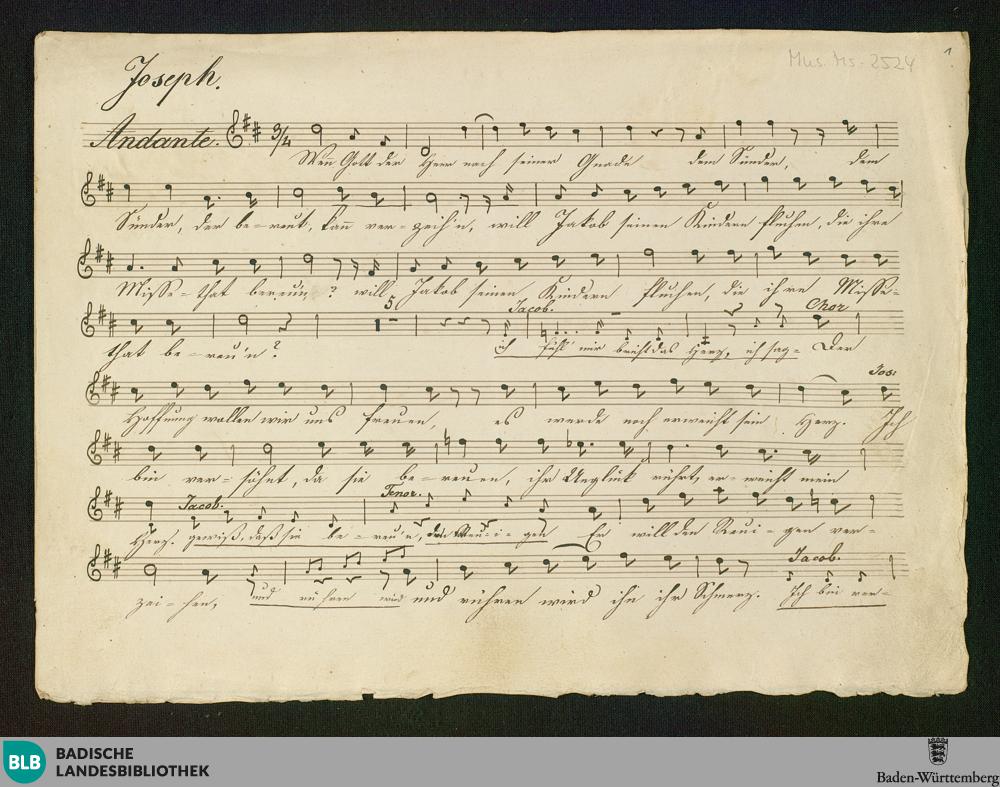 Mus. Ms. 2524
1
Joseph.
Andante. 3/4
Wen̅ Gott der Herr nach seiner Gnade dem Sünder, dem
Sünder, der be-reut, kan̅ ver-zeih'n, will Jakob seinen Kindern fluchen, die ihre
Misse-that bereu'n? will Jakob seinen Kindern fluchen, die ihre Misse-
5 Jacob. Chor
that be-reu'n? ich fühl' mir bricht das Herz, ich sag- Der
Jos:
Hoffnung wollen wir uns freuen, es werde noch erweicht sein Herz. Ich
bin ver-söhnt, da sie be-reuen, ihr Unglük rührt, er-weicht mein
Jacob. Tenor.
Herz. gewiß, daß sie be-reu'n, den Reu-i-gen Er will den Reui-gen ver-
Jacob.
zei-hen, und rühren wird und rühren wird ihn ihr Schmerz. Ich bin ver-
BLB BADISCHE
LANDESBIBLIOTHEK
Baden-Württemberg